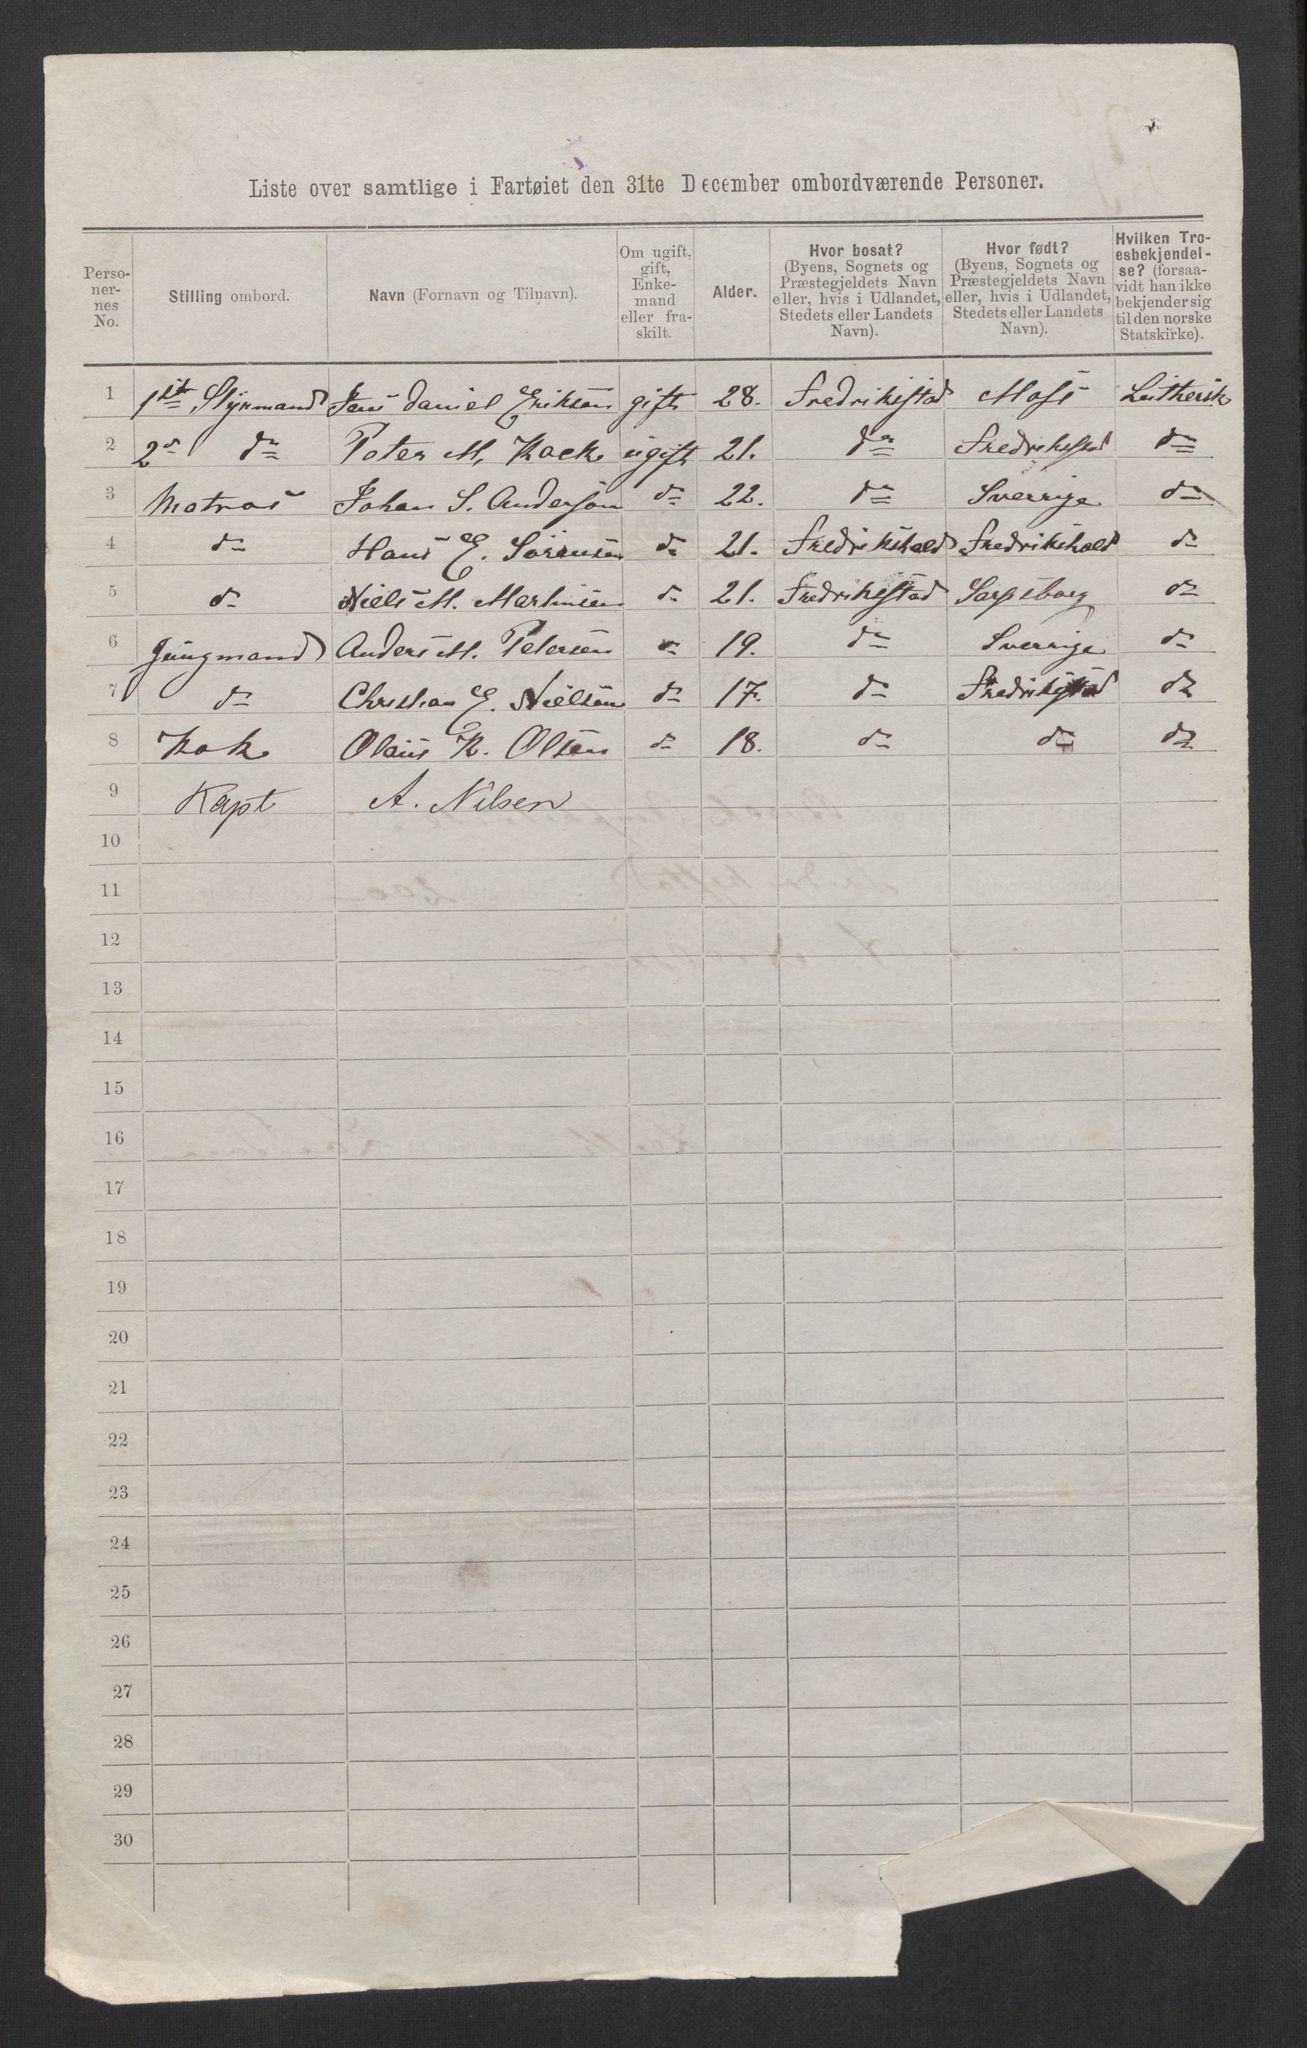 Liste over samtlige i Fartøiet den 31te December ombordværende Personer.
Personernes No. | Stilling ombord. | Navn (Fornavn og Tilnavn). | Om ugift, gift, Enkemand eller fraskilt. | Alder. | Hvor bosat? (Byens, Sognets og Præstegjeldets Navn eller, hvis i Udlandet, Stedets eller Landets Navn). | Hvor født? (Byens, Sognets og Præstegjeldets Navn eller, hvis i Udlandet, Stedets eller Landets Navn). | Hvilken Troesbekjendelse? (forsaavidt han ikke bekjender sig til den norske Statskirke).
1 | 1ste Styrmand | Jens Daniel Erikson | gift | 28. | Fredrikstad | Moss | Luthersk
2 | 2n do | Peter M, Kock | ugift | 21. | do | Fredrikstad | do
3 | Matros | Johan S. Anderson | do | 22. | do | Sverrige | do
4 | do | Hans E. Sörensen | do | 21. | Fredrikshald | Fredrikshald | do
5 | do | Niels M. Martinsen | do | 21. | Fredrikstad | Sarpsborg | do
6 | Jungmand | Anders M. Petersen | do | 19. | do | Sverrige | do
7 | do | Christian E. Nielsen | do | 17. | do | Fredrikstad | do
8 | Kok | Olaus K. Olsen | do | 18. | do | do | do
9 | Kapt | A. Nilsen
10
11
12
13
14
15
16
17
18
19
20
21
22
23
24
25
26
27
28
29
30